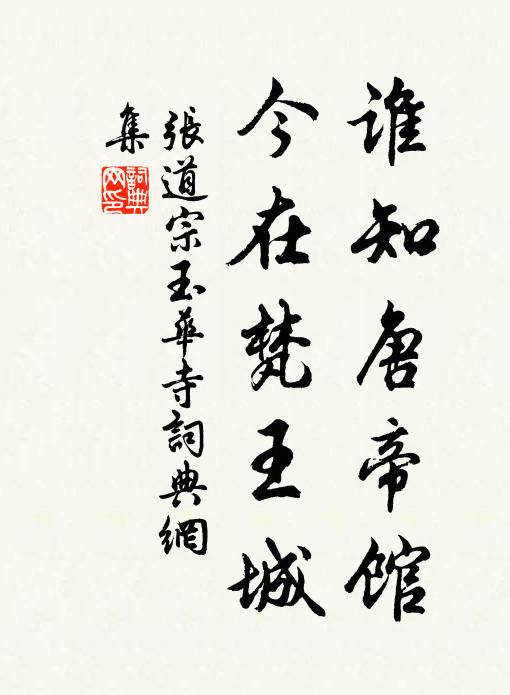 谁知唐帝馆
今在梵王城
張道宗玉華寺詞典網
集
詞典
网印